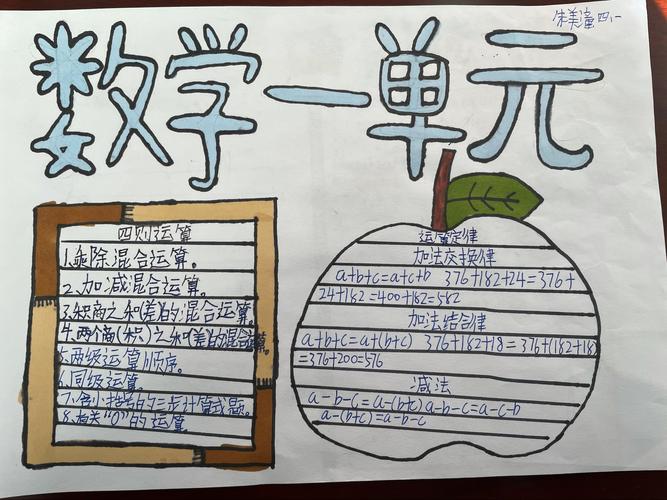 朱美潼 四.一
数学一单元
四则运算
1.乘除混合运算。
2.加减混合运算。
3.积商之和(差)的混合运算。
4.两个商(积)之和(差)的混合运算。
5.两级运算顺序。
6.同级运算。
7.含小括号的三步计算式题。
8.有关"0"的运算
运算定律
加法交换律
a+b+c=a+c+b 376+182+24=376+
24+182=400+182=582
加法结合律
a+b+c=a+(b+c) 376+182+18=376+(182+18)
=376+200=576
减法
a-b-c=a-(b+c) a-b-c=a-c-b
a-(b+c)=a-b-c